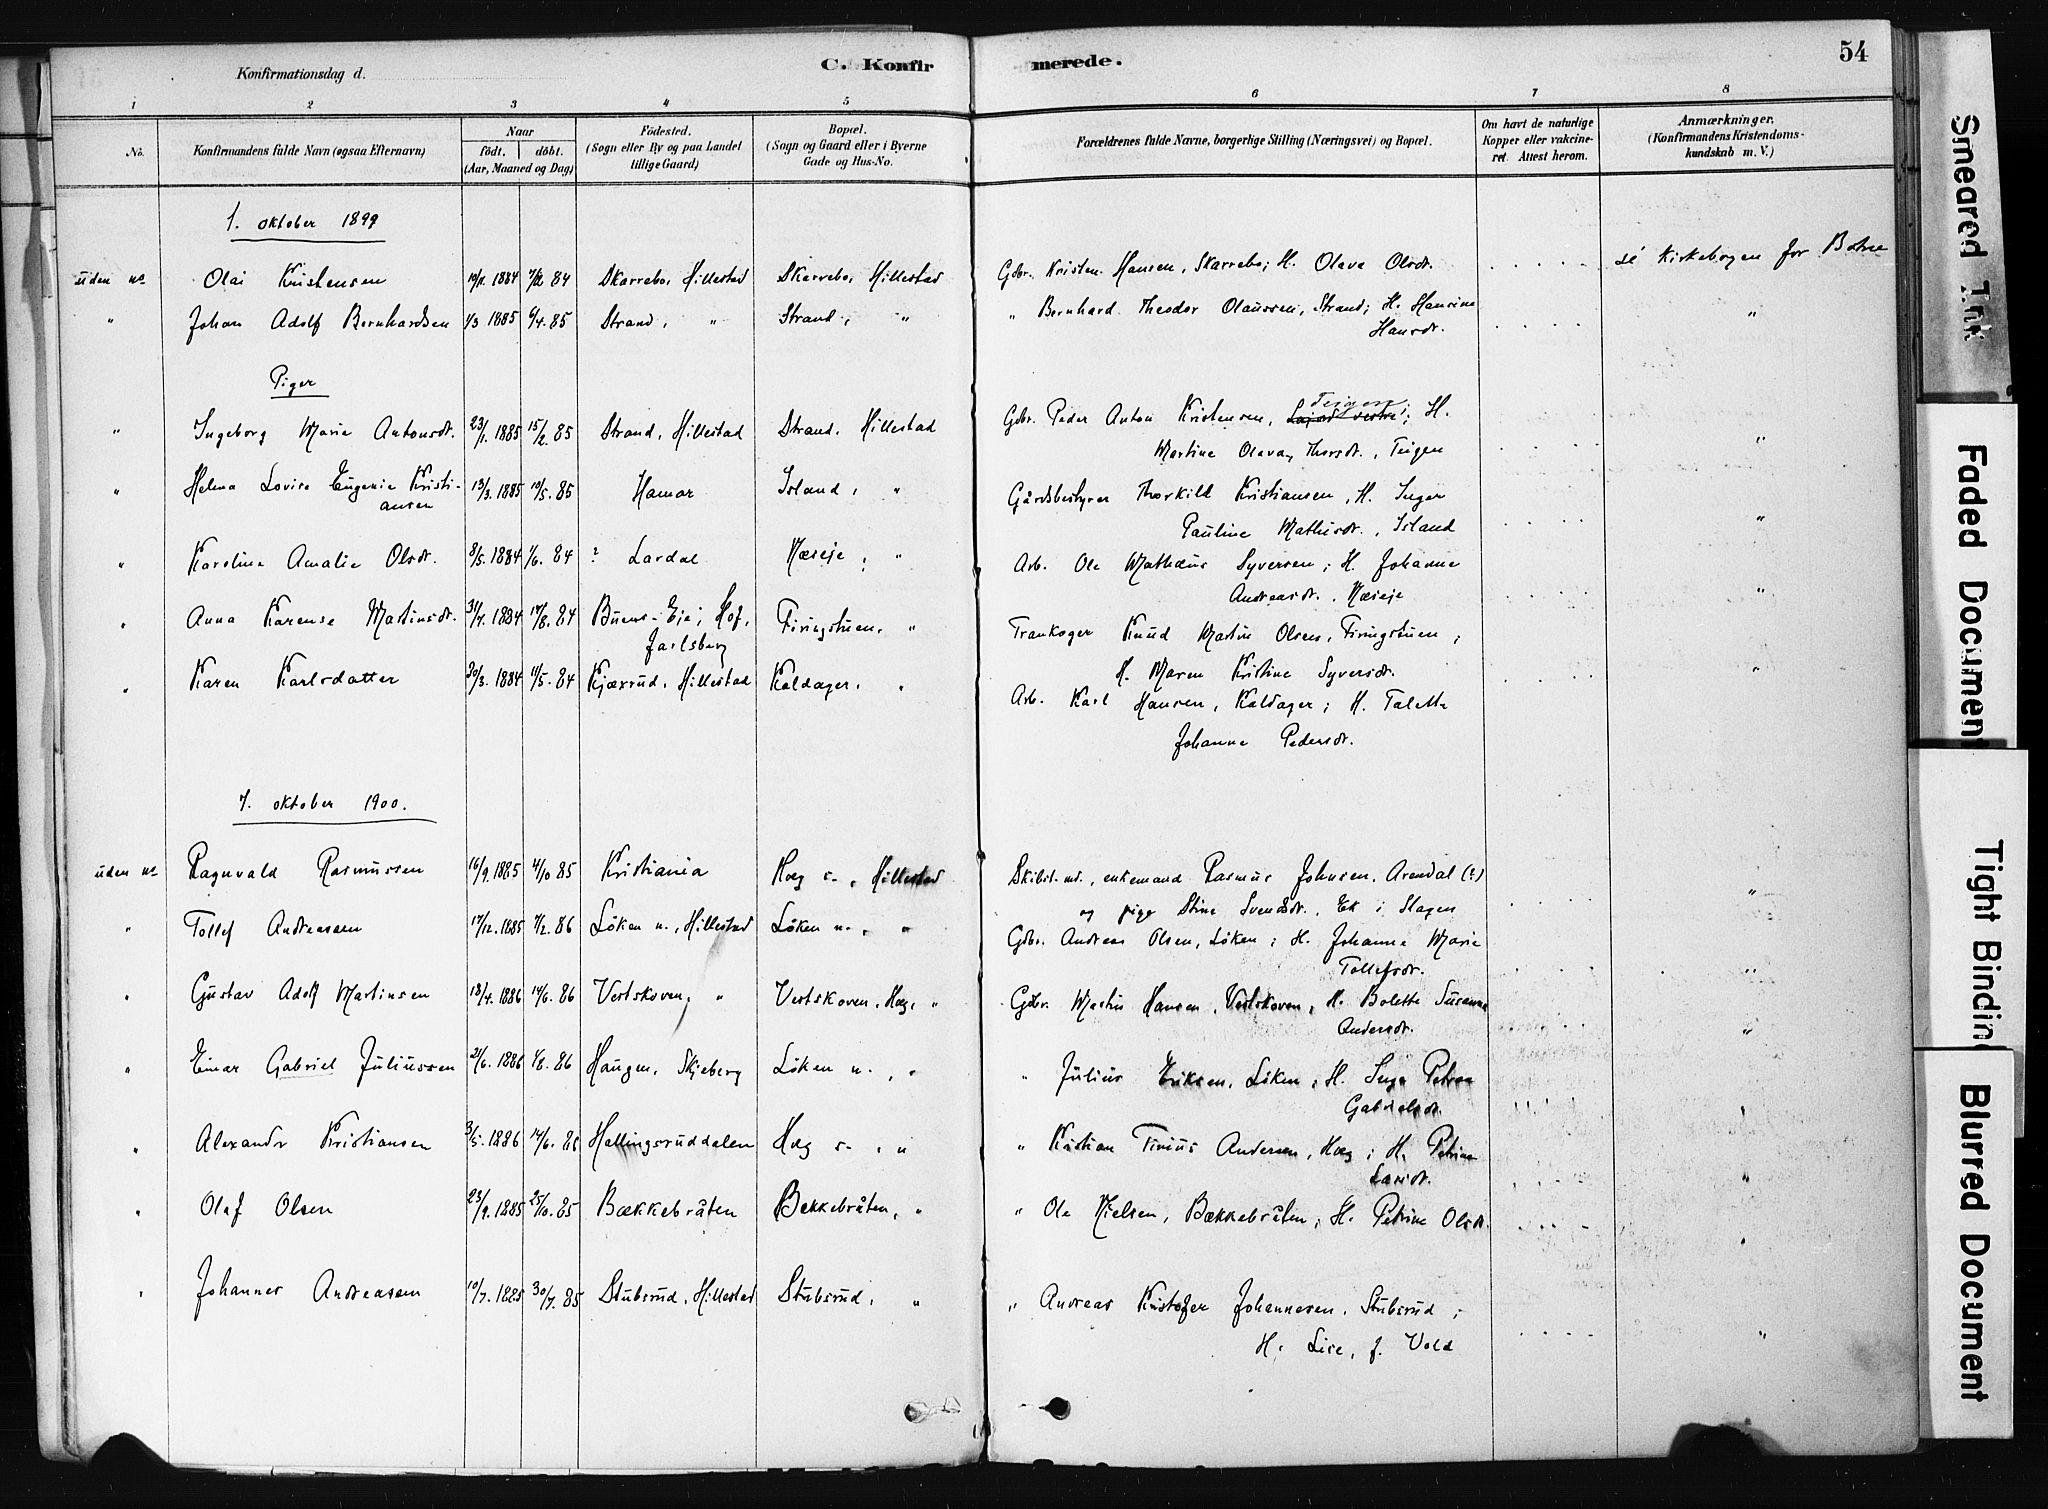 Konfirmationsdag d.
C. Konfirmerede.
54
1 2 3 4 5 6 7 8
No.
Konfirmandens fulde Navn (ogsaa Efternavn)
Naar
födt. döbt.
(Aar, Maaned og Dag)
Födested.
(Sogn eller By og paa Landet
tillige Gaard)
Bopæl.
(Sogn og Gaard eller i Byerne
Gade og Hus-No.
Forældrenes fulde Navne, borgerlige Stilling (Næringsvei) og Bopæl.
Om havt de naturlige
Kopper eller vakcine-
ret. Attest herom.
Anmærkninger.
(Konfirmandens Kristendoms-
kundskab m. V.)
1. oktober 1899
uden no Olai Kristensen 19/11. 1884 7/12 84 Skarrebo, Hillestad Skarrebo, Hillestad Gdbr. Kristen Hansen, Skarrebo; H. Olava Olsdt. se kirkebogen for Botne
" Johan Adolf Bernhardsen 1/3 1885 6/4. 85 Strand, " Strand, " " Bernhard Theodor Olaussen, Strand; H. Hansine "
Hansdt.
Piger
" Ingeborg Marie Antonsdt. 23/1. 1885 15/2. 85 Strand, Hillestad Strand, Hillestad Gdbr. Peder Anton Kristensen, Teigen; H. "
Martine Olava Thorsdt., Teigen
" Helma Lovise Eugenie Kristi- 13/3. 1885 10/5. 85 Hamar Island, " Gårdsbestyrer Thorkild Kristiansen, H. Inger "
ansen
Pauline Mathisdt., Island
" Karoline Amalie Olsdt. 8/5. 1884 1/6. 84 ? Lardal Næseje, " Arb. Ole Mathæus Syversen; H. Johanne "
Andreasdt., Næseje
" Anna Karense Martinsdt. 31/7. 1884 17/8. 84 Buens-Eje; Hof, Firingstuen, " Trankoger Knud Martin Olsen, Firingstuen; "
Jarlsberg
H. Maren Kristine Syversdt.
" Karen Karlsdatter 30/3. 1884 11/5. 84 Kjærrud, Hillestad Kaldager, " Arb. Karl Hansen, Kaldager; H. Talette
Johanne Pedersdt.
7. oktober 1900.
uden no Ragnvald Rasmussen 16/9. 1885 4/10 85 Kristiania Hæg s., Hillestad enkemand Rasmus Johnsen, Arendal (?) "
og pige Stine Svendsdt., Ek i Slagen
" Tollef Andreasen 17/12. 1885 7/2. 86 Löken n., Hillestad Löken n., " Gdbr. Andreas Olsen, Löken; H. Johanne Marie "
Tollefsdt.
" Gustav Adolf Martinsen 18/4. 1886 14/6. 86 Vestskoven, " Vestskoven, Hæg, " Gdbr. Martin Hansen, Vestskoven, H. Bolette Susanne "
Andersdt.
" Einar Gabriel Juliussen 21/6. 1886 1/8. 86 Haugen, Skjeberg Löken n., " " Julius Eriksen, Löken; H. Inga Petrea "
Gabrielsdt.
" Alexander Kristiansen 3/5. 1886 14/6. 86 Hallingsruddalen Hæg s., " " Kristian Andersen, Hæg; H. Petrine "
Larsdt.
" Olaf Olsen 23/9. 1885 25/10. 85 Bækkebråten Bekkebråten, " " Ole Nielsen, Bækkebråten; H. Petrine Olsdt. "
" Johannes Andreasen 10/7. 1885 30/7. 85 Stubsrud, Hillestad Stubsrud, " " Andreas Kristofer Johannesen, Stubsrud; "
H. Lise, f. Vold
Smeared Ink
Faded Document
Tight Binding
Blurred Document